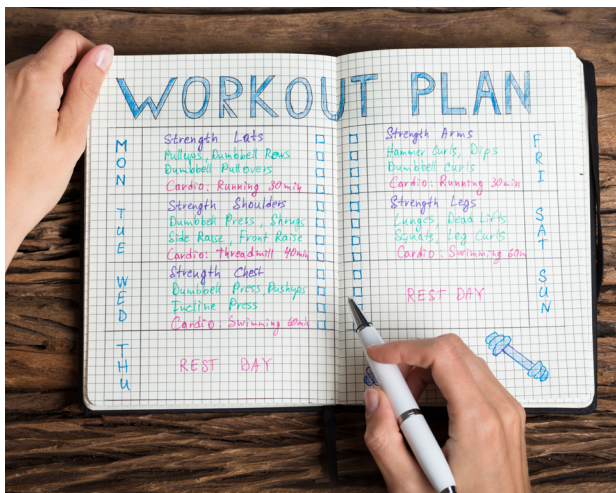 WORKOUT PLAN
MON
Strength Lats
Pullups, Dumbbell Rows
Dumbbell Pullovers
Cardio: Running 30 min
TUE
Strength Shoulders
Dumbbell Press, Shrugs
Side Raise, Front Raise
Cardio: Threadmill 40min
WED
Strength Chest
Dumbbell Press, Pushups
Incline Press
Cardio: Swimming 60min
THU
REST DAY
FRI
Strength Arms
Hammer Curls, Dips
Dumbbell Curls
Cardio: Running 30 min
SAT
Strength Legs
Lunges, Dead Lifts
Squats, Leg Curls
Cardio: Swimming 60m
SUN
REST DAY